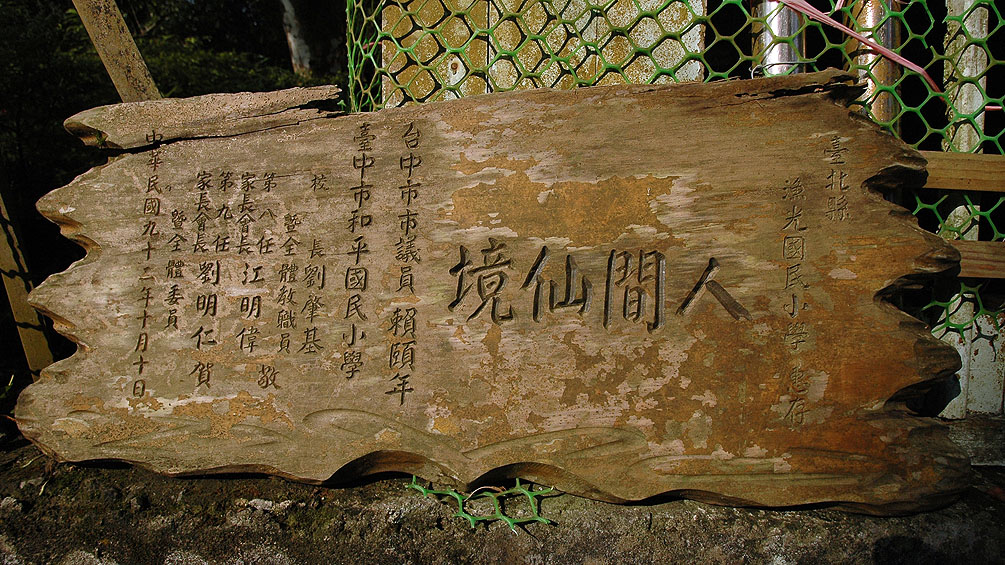 臺北縣
漁光國民小學 惠存
人間仙境
台中市市議員 賴頤年
臺中市和平國民小學
校長劉肇基
暨全體教職員
第八任
家長會長 江明偉 敬
第九任
家長會長 劉明仁 賀
暨全體委員
中華民國九十二年十月十日